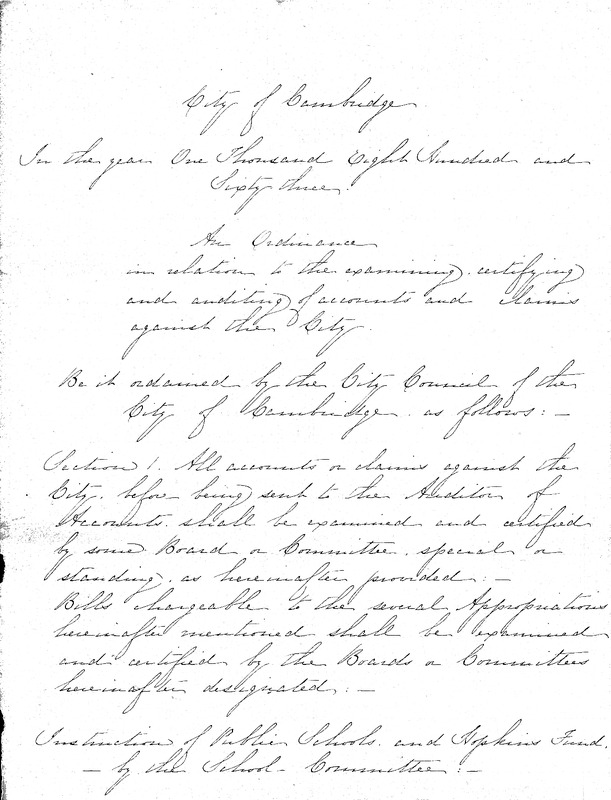 City of Cambridge.
In the year One Thousand Eight Hundred and
Sixty three.
An Ordinance
in relation to the examining, certifying
and auditing of accounts and claims
against the City.
Be it ordained by the City Council of the
City of Cambridge as follows: —
Section 1. All accounts or claims against the
City, before being sent to the Auditor of
Accounts, shall be examined and certified
by some Board or Committee, special or
standing, as hereinafter provided: —
Bills chargeable to the several Appropriations
hereinafter mentioned shall be examined
and certified by the Boards or Committees
hereinafter designated: —
Instruction of Public Schools, and Hopkins Fund,
— by the School - Committee: —